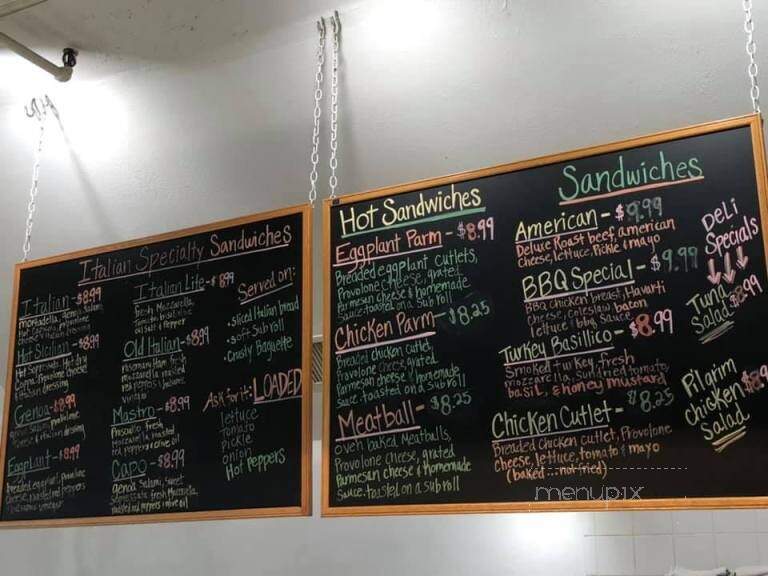 Italian Specialty Sandwiches
Italian - $8.99
mortadella, genoa salami,
Hot Sicilian - $8.99
Hot Sopressata, Hot dry
Capa, Provolone cheese
Italian dressing
Genoa - $8.99
genoa salami, provolone
cheese, & Italian dressing
Eggplant - $8.99
Breaded eggplant, provolone
cheese, roasted red peppers
Italian Lite - $8.99
fresh Mozzarella,
Tomato, basil, olive
oil, Salt & Pepper
Old Italian - $8.99
rosemary Ham, fresh
mozzarella, roasted
red peppers, balsamic
vinegar
Mastro - $8.99
Prosciutto, fresh
mozzarella, roasted
red peppers & olive oil
Capo - $8.99
genoa Salami, sweet
Sopressata, fresh Mozzarella,
roasted red peppers & olive oil
Served on:
• Sliced Italian bread
• Soft Sub roll
• Crusty Baguette
Ask for it: LOADED
lettuce
tomato
pickle
onion
Hot peppers
Hot Sandwiches
Eggplant Parm - $8.99
Breaded eggplant cutlets,
Provolone cheese, grated
Parmesan cheese & homemade
Sauce. toasted on a sub roll
Chicken Parm - $8.25
Breaded chicken cutlet,
Provolone cheese, grated
Parmesan cheese & homemade
Sauce. toasted on a sub roll
Meatball - $8.25
oven baked Meatballs,
Provolone cheese, grated
Parmesan cheese & homemade
Sauce. toasted on a sub roll
Sandwiches
American - $9.99
Deluxe Roast beef, american
cheese, lettuce, pickle & mayo
BBQ Special - $9.99
BBQ chicken breast, Havarti
cheese, coleslaw, bacon
lettuce & bbq Sauce
Turkey Basillico - $8.99
Smoked turkey, fresh
mozzarella, Sundried tomato,
basil, & honey mustard
Chicken Cutlet - $8.25
Breaded chicken cutlet, Provolone
cheese, lettuce, tomato & mayo
(baked...not fried)
Deli
Specials
Tuna $8.99
Salad
Pilgrim
Chicken
Salad
menupix